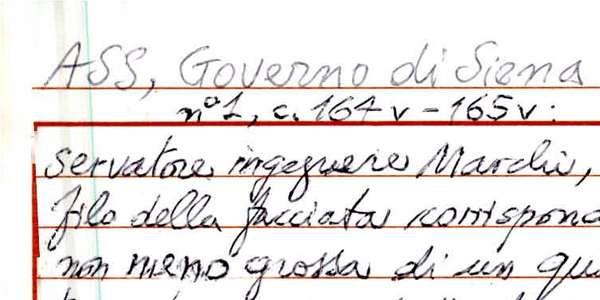 ASS, Governo di Siena
n° 1, c. 164 v - 165 v:
servatore ingegnere Marchi,
filo della facciata corrispond
non meno grossa di un qu